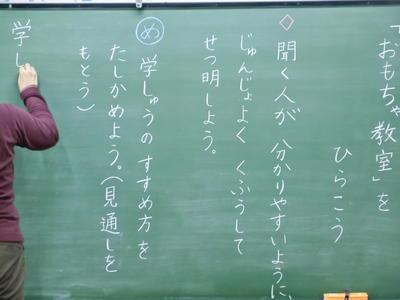 「おもちゃ教室」を
ひらこう
◇聞く人が 分かりやすいように、
じゅんじょよく くふうして
せつ明しよう。
め 学しゅうの すすめ方を
たしかめよう。(見通しを
もとう)
学し